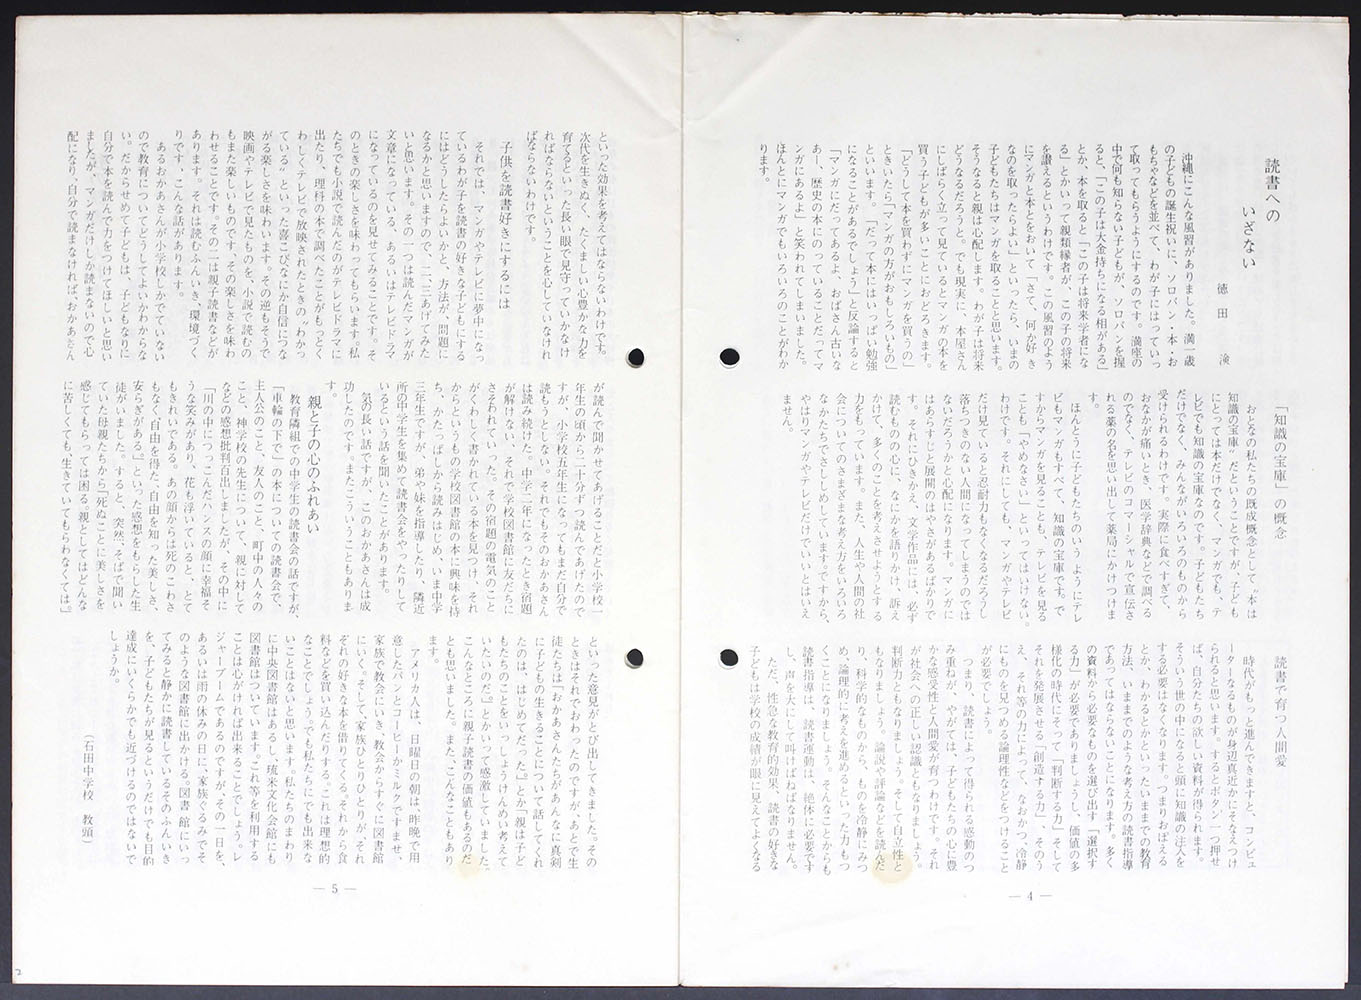 読書への
いざない
徳田
沖縄にこんな風習がありました。満一歳
の子どもの誕生祝いに、ソロバン・本・お
もちゃなどを並べて、わが子にはっていっ
て取ってもらうようにするのです。満座の
中で何も知らない子どもが、ソロバンを握
ると、「この子は大金持ちになる相がある」
とか、本を取ると「この子は将来学者にな
る」とかいって親類縁者が、この子の将来
を讃えるというわけです。この風習のよう
にマンガと本とをおいて「さて、何か好き
なのを取ったらよい」といったら、いまの
子どもたちはマンガを取ることと思います。
そうなると親は心配します。わが子は将来
どうなるだろうと。でも現実に、本屋さん
にしばらく立って見ているとマンガの本を
買う子どもが多いことにおどろきます。
「どうして本を買わずにマンガを買うの」
ときいたら「マンガの方がおもしろいもの」
といいます。「だって本にはいっぱい勉強
になることがあるでしょう」と反論すると
「マンガにだってあるよ、おばさん古いな
あー、歴史の本にのっていることだってマ
ンガにあるよ」と笑われてしまいました。
ほんとにマンガでもいろいろのことがわか
ります。
「知識の宝庫」の概念
おとなの私たちの既成概念として〝本は
知識の宝庫〟だということですが、子ども
にとっては本だけでなく、マンガでも、テ
レビでも知識の宝庫なのです。子どもたち
だけでなく、みんながいろいろのものから
受けられるわけです。実際に食べすぎて、
おなかが痛いとき、医学辞典などで調べる
のでなく、テレビのコマーシャルで宣伝さ
れる薬の名を思い出して薬局にかけつけま
す。
ほんとうに子どもたちのいうようにテレ
ビもマンガもすべて、知識の宝庫です。で
すからマンガを見ることも、テレビを見る
ことも「やめなさい」といってはいけない
わけです。それにしても、マンガやテレビ
だけ見ていると忍耐力もなくなるだろうし
落ちつきのない人間になってしまうのでは
ないだろうかと心配になります。マンガに
はあらすじと展開のはやさがあるばかりで
す。それにひきかえ、文学作品には、必ず
読むものの心に、なにかを語りかけ、訴え
かけて、多くのことを考えさせようとする
力をもっています。また、人生や人間の社
会についてのさまざまな考え方をいろいろ
なかたちでさししめしています。ですから、
やはりマンガやテレビだけでいいとはいえ
ません。
読書で育つ人間愛
時代がもっと進んできますと、コンピュ
ーターなるものが身辺真近かにそなえつけ
られると思います。するとボタン一つ押せ
ば、自分たちの欲しい資料が得られます。
そういう世の中になると頭に知識の注入を
する必要はなくなります。つまりおぼえる
とか、わかるとかといったいままでの教育
方法、いままでのような考え方の読書指導
であってはならないことになります。多く
の資料から必要なものを選び出す「選択す
る力」が必要でありましょうし、価値の多
様化の時代にそって「判断する力」そして
それを発展させる「創造する力」、そのう
え、それ等の力によって、なおかつ、冷静
にものを見つめる論理性などをつけること
が必要でしょう。
つまり、読書によって得られる感動のつ
み重ねが、やがては、子どもたちの心に豊
かな感受性と人間愛が育つわけです。それ
が社会への正しい認識ともなりましょう。
判断力ともなりましょう。そして自立性と
もなりましょう。論説や評論などを読んだ
り、科学的なものから、ものを冷静にみつ
め、論理的に考えを進めるといった力もつ
くことになりましょう。そんなことからも
読書指導は、読書運動は、絶体に必要です
し、声を大にして叫けばねばなりません。
ただ、性急な教育的効果、読書の好きな
子どもは学校の成績が眼に見えてよくなる
— 4 —
といった効果を考えてはならないわけです。
次代を生きぬく、たくましい心豊かな力を
育てるといった長い眼で見守っていかなけ
ればならないということを心していなけれ
ばならないわけです。
子供を読書好きにするには
それでは、マンガやテレビに夢中になっ
ているわが子を読書の好きな子どもにする
にはどうしたらよいかと、方法が、問題に
なるかと思いますので、二・三あげてみた
いと思います。その一つは読んだマンガが
文章になっている、あるいはテレビドラマ
になっているのを見せてみることです。そ
のときの楽しさを味わってもらいます。私
たちでも小説で読んだのがテレビドラマに
出たり、理科の本で調べたことがもっとく
わしくテレビで放映されたときの〝わかっ
ている〟といった喜こびなにか自信につな
がる楽しさを味わいます。その逆もそうで
映画やテレビで見たものを、小説で読むの
もまた楽しいものです、その楽しさを味わ
わせることです。その二は親子読書などが
あります。それは読むふんいき、環境づく
りです、こんな話があります。
あるおかあさんが小学校しかでていない
ので教育についてどうしてよいかわからな
い。だからせめて子どもは、子どもなりに
自分で本を読んで力をつけてほしいと思い
ましたが、マンガだけしか読まないので心
配になり、自分で読まなければ、おかあさん
が読んで聞かせてあげることだと小学校一
年生の頃から二十分ずつ読んであげたので
すが、小学校五年生になってもまだ自分で
読もうとしない。それでもそのおかあさん
は読み続けた。中学二年になったとき宿題
が解けない、それで学校図書館に友だちに
さそわれていった。その宿題の電気のこと
がくわしく書かれている本を見つけ、それ
からというもの学校図書館の本に興味を持
ち、かたっぱしから読みはじめ、いま中学
三年生ですが、弟や妹を指導したり、隣近
所の中学生を集めて読書会をやったりして
いるという話を聞いたことがあります。
気の長い話ですが、このおかあさんは成
功したのです。またこういうこともありま
す。
親と子の心のふれあい
教育隣組での中学生の読書会の話ですが、
「車輪の下で」の本についての読書会で、
主人公のこと、友人のこと、町中の人々の
こと、神学校の先生について、親に対して
などの感想批判百出しましたが、その中に
「川の中につっこんだハンスの顔に幸福そ
うな笑みがあり、花も浮いていると、とて
もきれいである。あの顔からは死のこわさ
もなく、自由を得た、自由を知った美しさ、
安らぎがある。」といった感想をもらした生
徒がいました。すると、突然、そばで聞い
ていた母親たちから「死ぬことに美しさを
感じてもらっては困る。親としてはどんな
に苦しくても、生きていてもらわなくては。」
といった意見がとび出してきました。その
ときはそれでおわったのですが、あとで生
徒たちは「おかあさんたちがあんなに真剣
に子どもの生きることについて話してくれ
たのは、はじめてだった。」とか「親は子ど
もたちのことをいっしょうけんめい考えて
いたいのだ。」とかいって感激していました。
こんなところに親子読書の価値もあるのだ
とも思いました。また、こんなこともあり
ます。
アメリカ人は、日曜日の朝は、昨晩で用
意したパンとコーヒーかミルクですませ、
家族で教会にいき、教会からすぐに図書館
にいく、そして、家族ひとりひとりが、それ
ぞれの好きな本を借りてくる。それから食
料などを買い込んだりする。これは理想的
なことでしょう。でも私たちにでも出来な
いことはないと思います。私たちのまわり
に中央図書館はあるし、琉米文化会館にも
図書館はついています。これ等を利用する
ことは心がければ出来ることでしょう。レ
ジャーブームであるのですが、その一日を、
あるいは雨の休みの日に、家族ぐるみでそ
のような図書館に出かける。図書館にいっ
てみると静かに読書しているそのふんいき
を、子どもたちが見るというだけでも目的
達成にいくらかでも近づけるのではないで
しょうか。
（石田中学校 教頭）
— 5 —
2